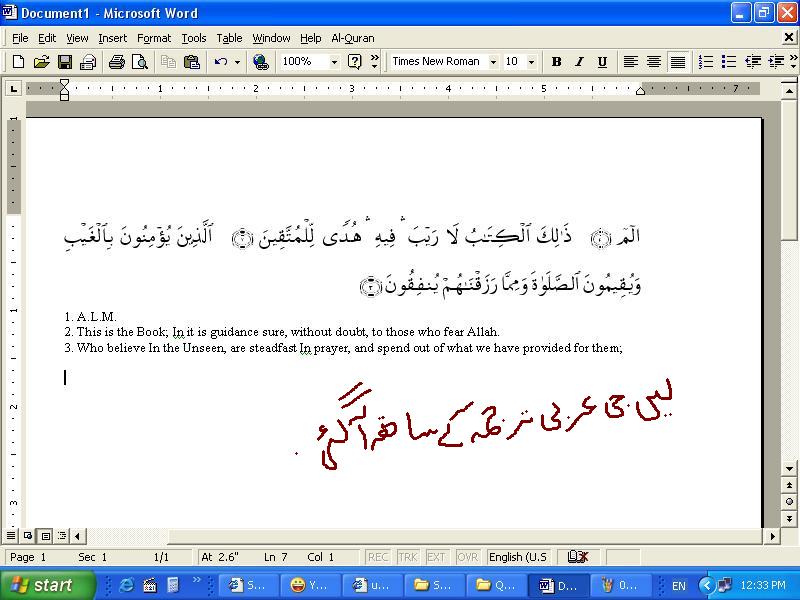 Document1 - Microsoft Word
File Edit View Insert Format Tools Table Window Help Al-Quran
100% Times New Roman 10 B I U
1 2 3 4 5 7
الٓمٓ ۝١ ذَٰلِكَ ٱلْكِتَٰبُ لَا رَيْبَ ۛ فِيهِ ۛ هُدًى لِّلْمُتَّقِينَ ۝٢ ٱلَّذِينَ يُؤْمِنُونَ بِٱلْغَيْبِ
وَيُقِيمُونَ ٱلصَّلَوٰةَ وَمِمَّا رَزَقْنَٰهُمْ يُنفِقُونَ ۝٣
1. A.L.M.
2. This is the Book; In it is guidance sure, without doubt, to those who fear Allah.
3. Who believe In the Unseen, are steadfast In prayer, and spend out of what we have provided for them;
لیں جی عربی ترجمہ کے ساتھ آگئی
Page 1 Sec 1 1/1 At 2.6" Ln 7 Col 1 REC TRK EXT OVR English (U.S
start S... Y... u... S... Q... D... 0... EN 12:33 PM